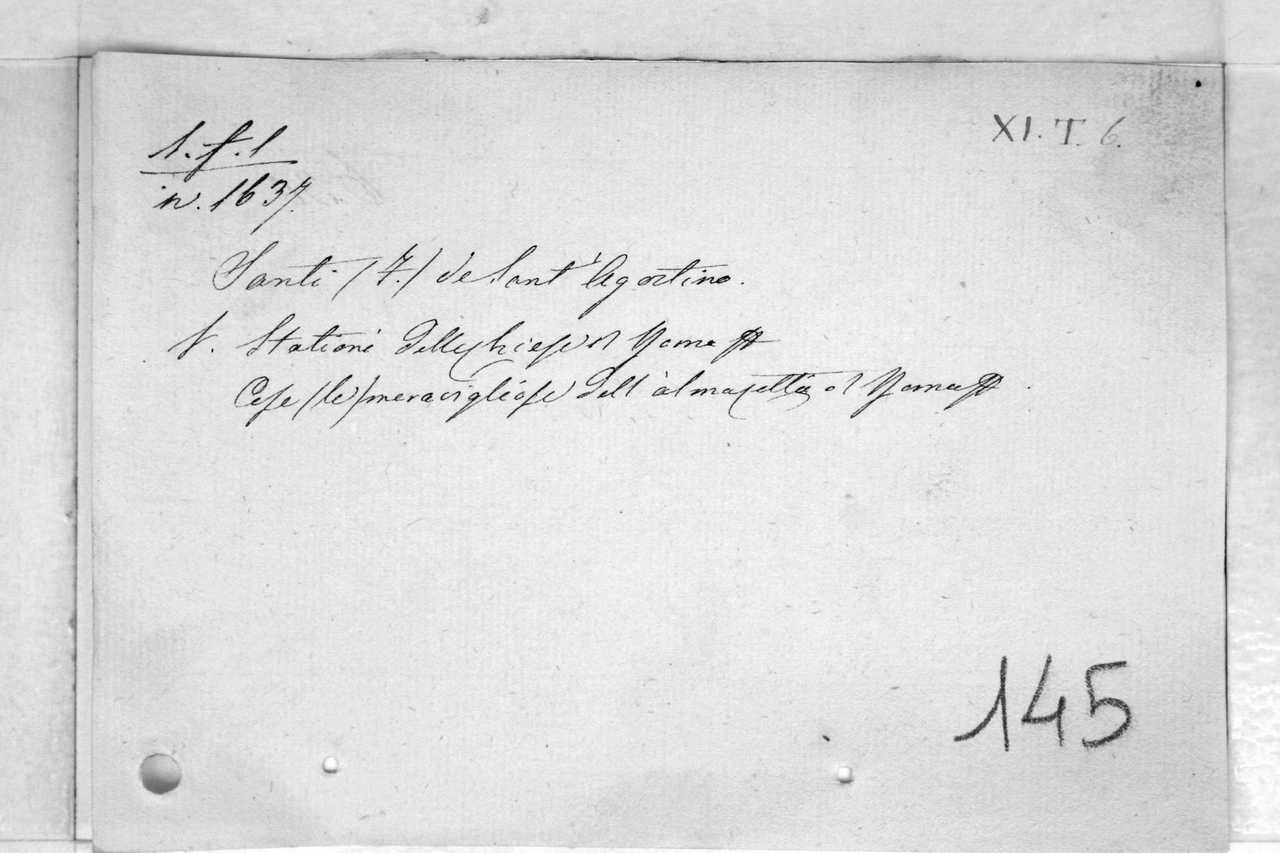 XI. T. 6.
S. f. 1
n. 1637.
Santi (F.) de Sant'Agostino.
V. Stationi delle chiese di Roma
Cose (le) maravigliose dell'alma città di Roma
145